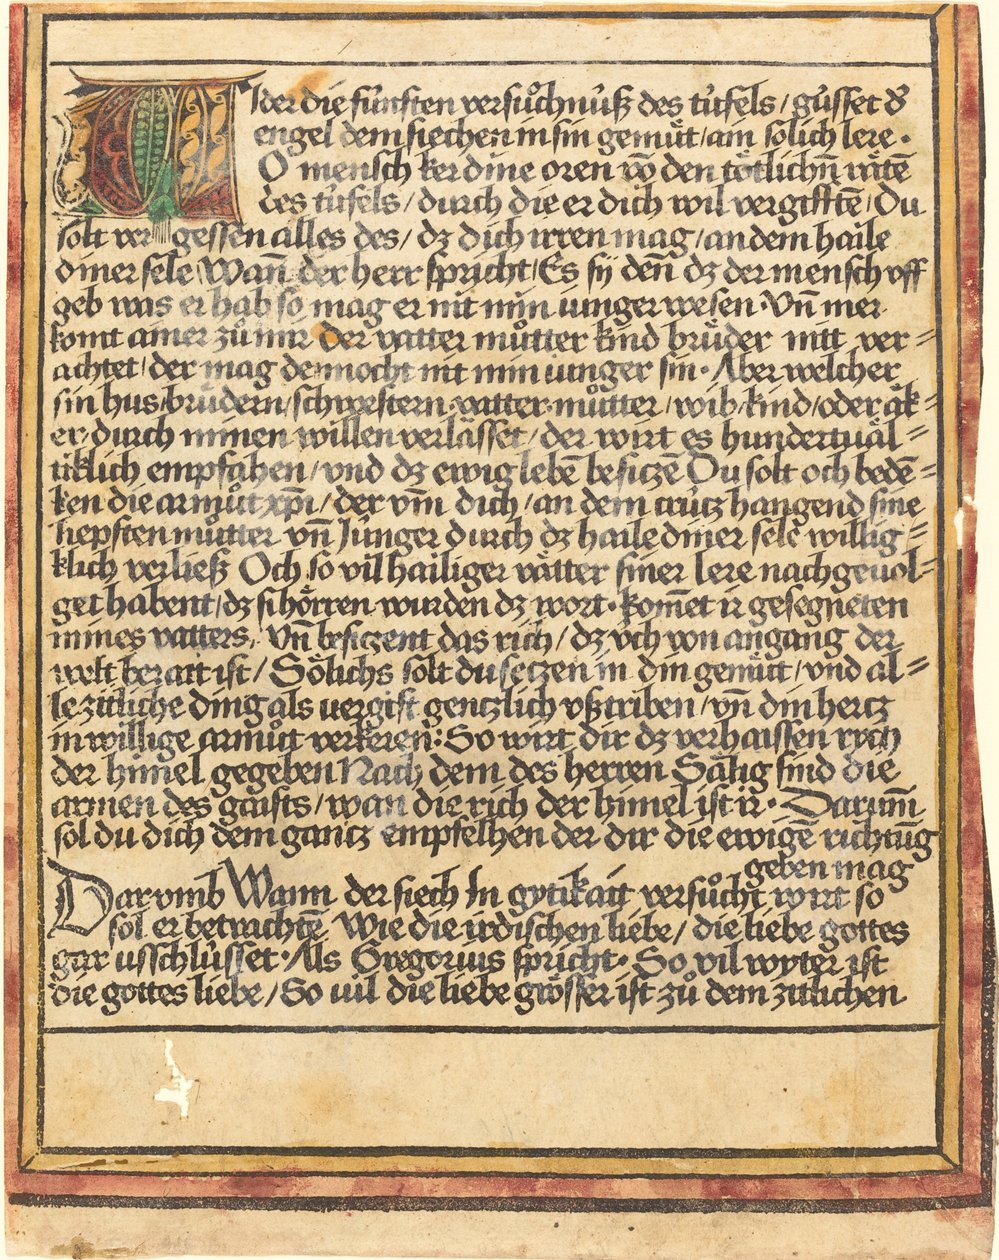 Wider die fúnften versůchnúß des túfels / gússet dˢ
engel dem siechen in sin gemuͤt / ain solich lere ·
O mensch ker dine oren võ den toͤtlichñ raͤtē
des túfels / durch die er dich wil vergifftē / Du
solt ver gessen alles des / dz dich irren mag / an dem haile
diner sele / Wañ der herr spricht / Es sÿ deñ dz der mensch vff
geb was er hab so mag er nit min iunger wesen · Vñ mer
komt ainer zů mir der vatter můtter kind bruͤder nitt ver =
achtet / der mag dennocht nit min iunger sin · Aber welcher
sin hus / brüdern / schwestern · vatter · můtter / wib / kind / oder aͤk =
er · durch minen willen verlaͤsset / der wirt es hundertuaͤl =
tiklich empfahen / vnd dz ewig lebē besiczē Du solt och bedē =
ken die armůt xp̃i / der vm̄ dich / an dem crúcz hangend sine
liepsten můtter vñ Júnger durch dz haile diner sele willig =
klich verließ Och so vil hailiger vaͤtter siner lere nach geuol =
get habent / dz si hoͤrren wurden dz wort · kom̄et ir gesegneten
mines vatters, · Vñ besiczent das rich / dz vch von angang der
welt berait ist / Soͤlichs solt du seczen in din gemuͤt / vnd al =
le zitliche ding als uergift genczlich vßtriben / vñ din hertz
in willige armůt verkeren : So wirt dir dz verhaissen rych
der him̄el gegeben Nach dem des herren Saͤlig sind die
armen des gaists / wan die rich der him̄el ist ir · Darum̄
sol du dich dem gantz empfelhen der dir die ewigē richtūg
geben mag
Darvmb Wann der siech In gytikait versůcht wirt so
sol er betrachtē Wie die irdischen liebe / die liebe gottes
gar usschlússet · Als Gregorius spricht · So vil wyter ist
die gottes liebe / So uil die liebe groͤsser ist zů dem zitlichen